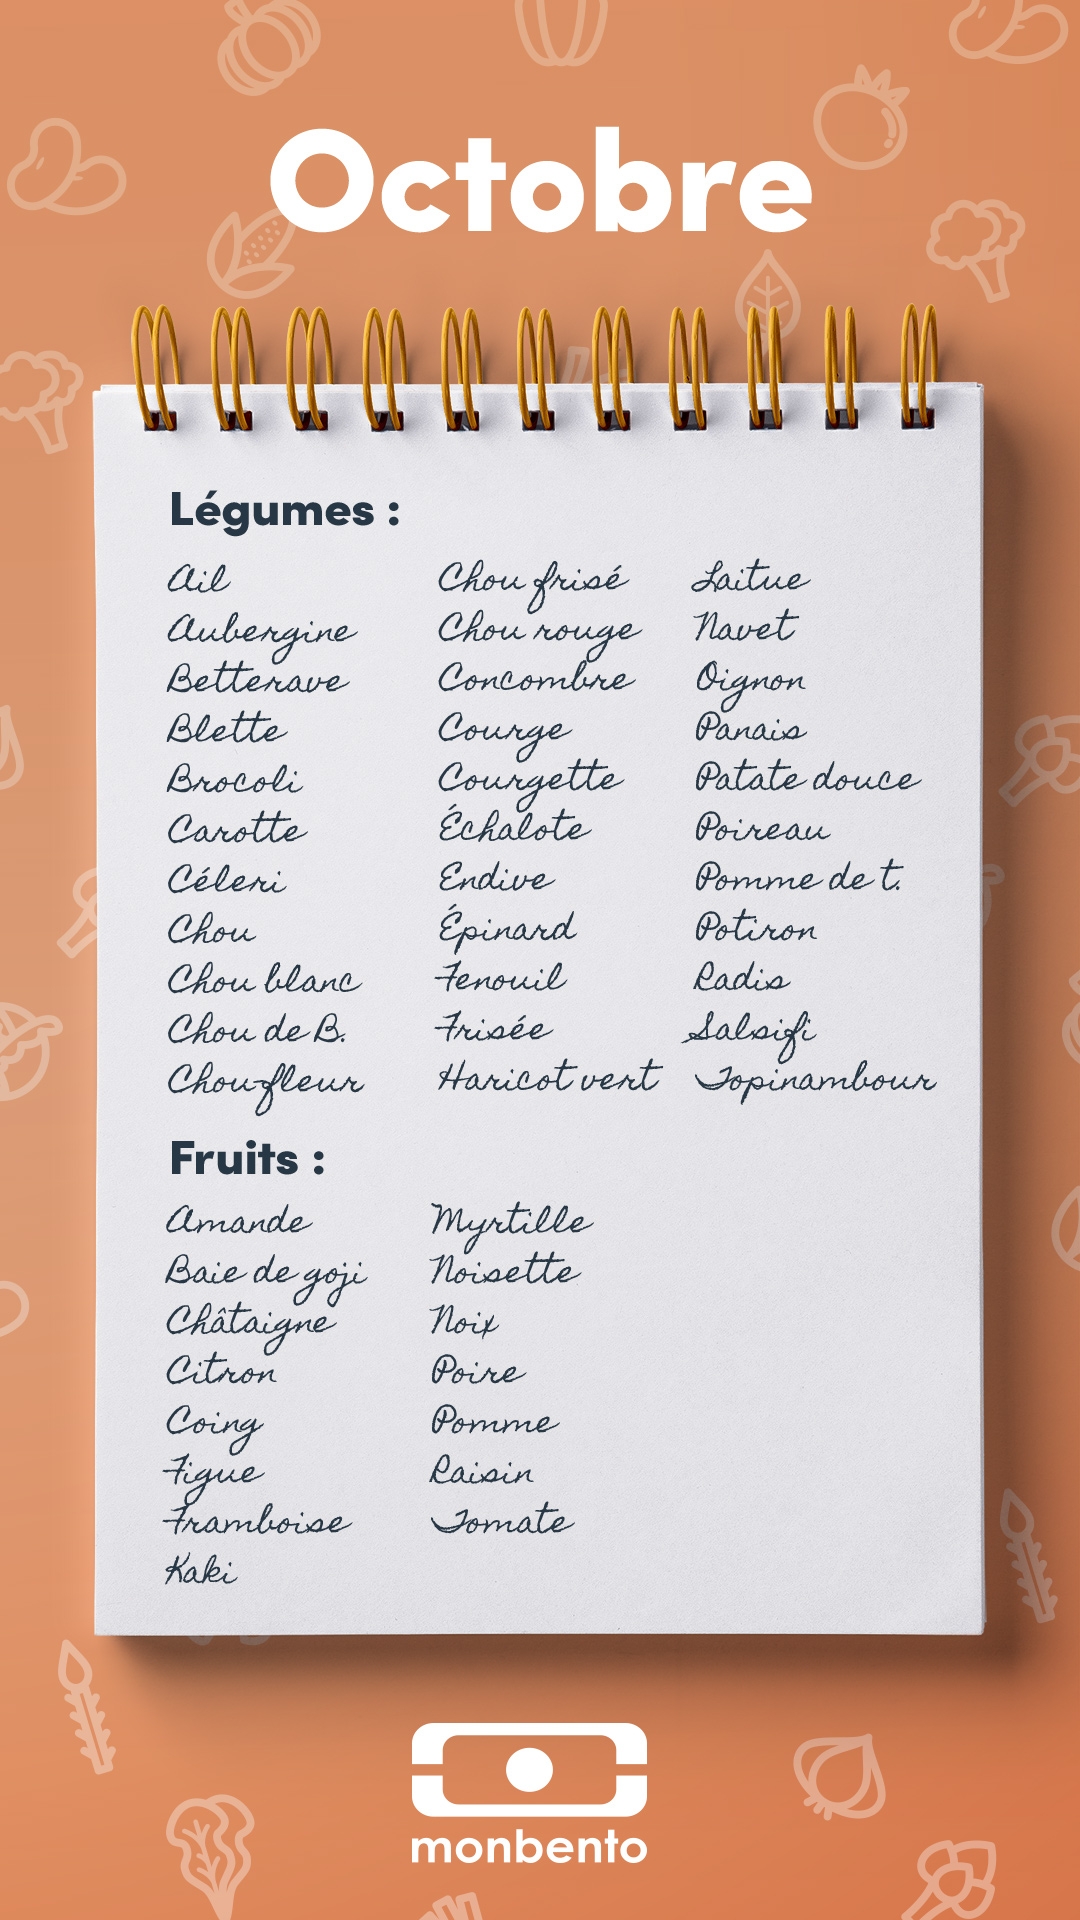 Octobre
Légumes :
Ail
Aubergine
Betterave
Blette
Brocoli
Carotte
Céleri
Chou
Chou blanc
Chou de B.
Chou-fleur
Chou frisé
Chou rouge
Concombre
Courge
Courgette
Échalote
Endive
Épinard
Fenouil
Frisée
Haricot vert
Laitue
Navet
Oignon
Panais
Patate douce
Poireau
Pomme de t.
Potiron
Radis
Salsifi
Topinambour
Fruits :
Amande
Baie de goji
Châtaigne
Citron
Coing
Figue
Framboise
Kaki
Myrtille
Noisette
Noix
Poire
Pomme
Raisin
Tomate
monbento